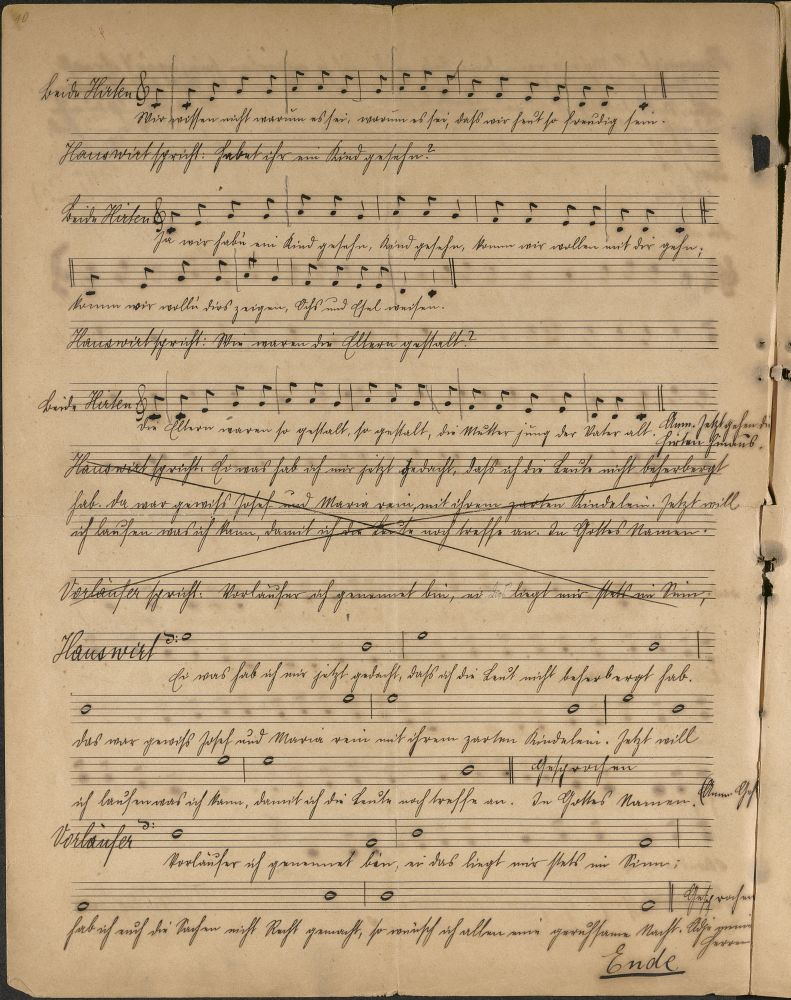 10
Beide Hirten
Wir wissen nicht warum es sei, warum es sei, daß wir heut so freudig sein.
Hauswirt spricht: Habet ihr ein Kind gesehn?
Beide Hirten
Ja wir habn ein Kind gesehn, Kind gesehn, komm wir wollen mit dir gehn;
komm wir wolln dirs zeigen, Ochs und Esel weisen.
Hauswirt spricht: Wie waren die Eltern gestalt?
Beide Hirten
Die Eltern waren so gestalt, so gestalt, die Mutter jung der Vater alt. Anm. Jetzt gehen die
Hirten hinaus.
Hauswirt spricht: Ei was hab ich mir jetzt gedacht, daß ich die Leute nicht beherbergt
hab. Da war gewiß Josef und Maria rein, mit ihrem zarten Kindelein. Jetzt will
ich laufen was ich kann, damit ich die Leute noch treffe an. In Gottes Namen.
Vorläufer spricht: Vorläufer ich genennet bin, ei liegt mir stets im Sinn;
Hauswirt
Ei was hab ich mir jetzt gedacht, daß ich die Leut nicht beherbergt hab.
das war gewiß Josef und Maria rein mit ihrem zarten Kindelein. Jetzt will
Gesprochen
ich laufen was ich kann, damit ich die Leute noch treffe an. In Gottes Namen. (Anm.
Vorläufer
Vorläufer ich genennet bin, ei das liegt mir stets im Sinn;
Gesprochen
hab ich euch die Sachen nicht Recht gemacht, so wünsch ich allen eine geruhsame Nacht. Adje meine
Herren
Ende